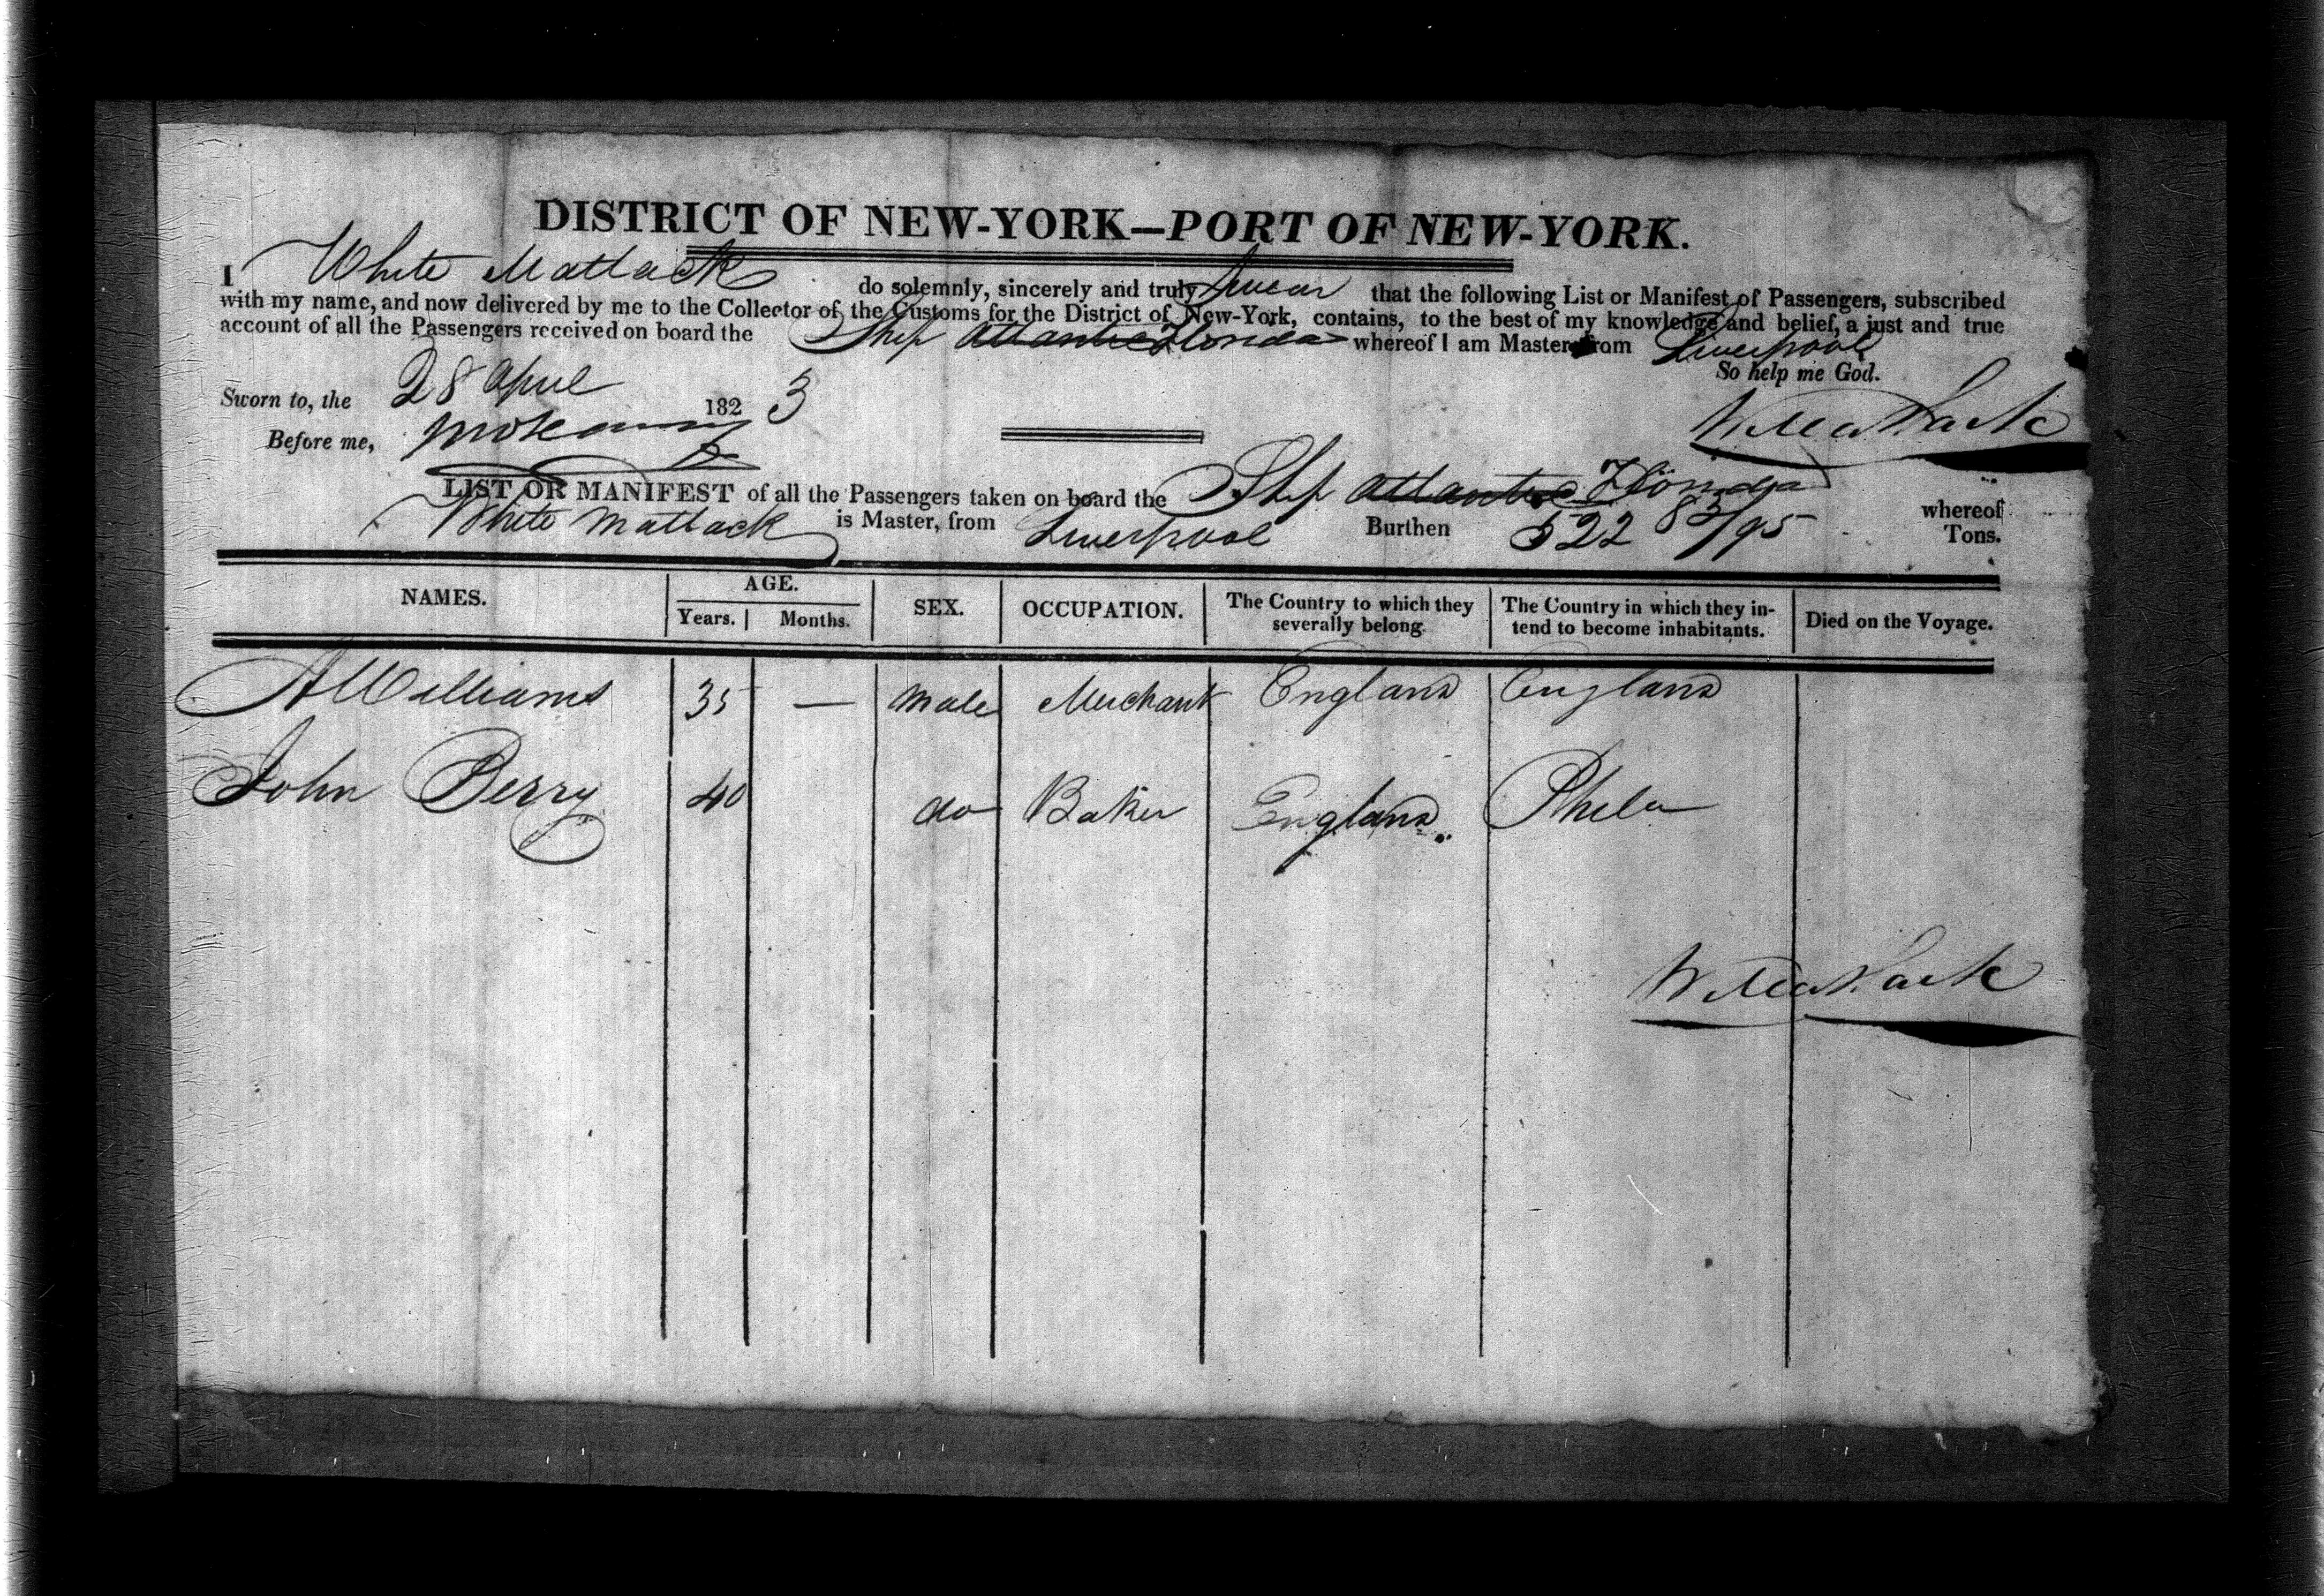 DISTRICT OF NEW-YORK—PORT OF NEW-YORK.
I White Matlack do solemnly, sincerely and truly swear that the following List or Manifest of Passengers, subscribed
with my name, and now delivered by me to the Collector of the Customs for the District of New-York, contains, to the best of my knowledge and belief, a just and true
account of all the Passengers received on board the Ship Atlantic Florida whereof I am Master from Liverpool
So help me God.
Sworn to, the 28 April 1823
W Matlack
Before me,
LIST OR MANIFEST of all the Passengers taken on board the Ship Atlantic Florida whereof
White Matlack is Master, from Liverpool Burthen 522 83/95 Tons.
NAMES. AGE. Years. Months. SEX. OCCUPATION. The Country to which they severally belong. The Country in which they intend to become inhabitants. Died on the Voyage.
A Williams 35 — Male Merchant England England
John Berry 40 do Baker England Phila
W Matlack